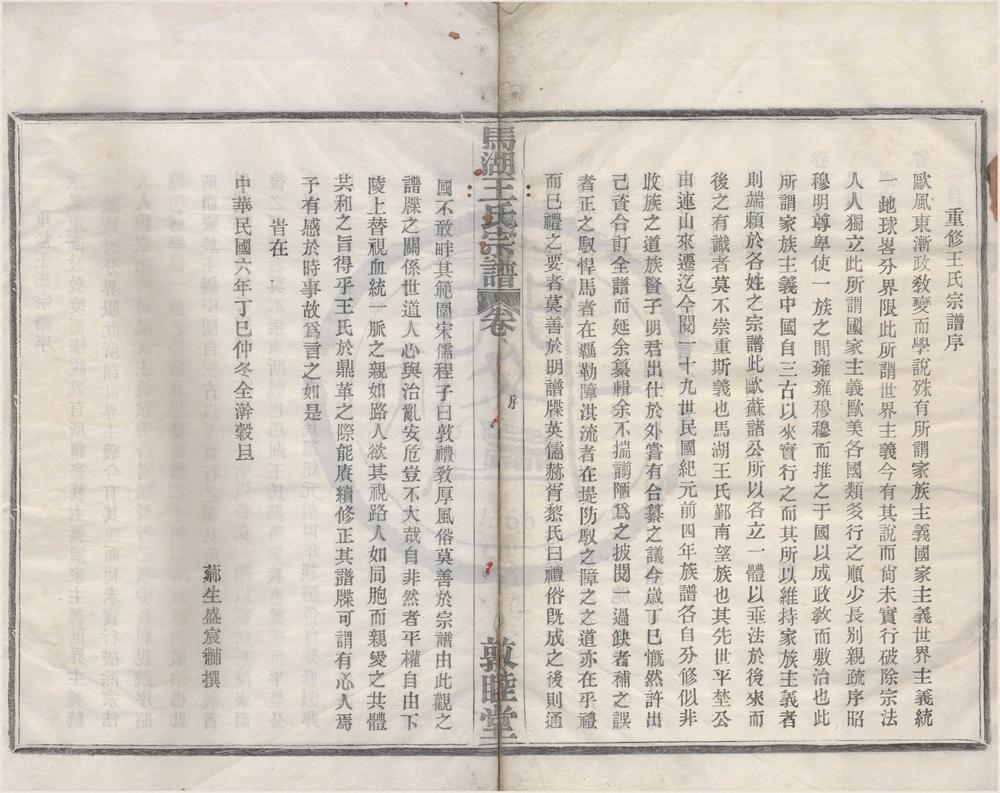 重修王氏宗譜序
歐風東漸政敎變而學說殊有所謂家族主義國家主義世界主義統
一地球畧分界限此所謂世界主義今有其說而尙未實行破除宗法
人人獨立此所謂國家主義歐美各國類多行之順少長別親疏序昭
穆明尊卑使一族之間雍雍穆穆而推之于國以成政敎而敷治也此
所謂家族主義中國自三古以來實行之而其所以維持家族主義者
則端賴於各姓之宗譜此歐蘇諸公所以各立一體以垂法於後來而
後之有識者莫不崇重斯義也馬湖王氏鄞南望族也其先世平埜公
由連山來遷迄今閱一十九世民國紀元前四年族譜各自分修似非
收族之道族賢子明君出仕於外嘗有合纂之議今歲丁巳慨然許出
己資合訂全譜而延余纂輯余不揣譾陋爲之披閱一過缺者補之誤
者正之馭悍馬者在羈勒障洪流者在堤防馭之障之之道亦在乎禮
而已禮之要者莫善於明譜牒英儒赫胥黎氏曰禮俗旣成之後則通
馬湖王氏宗譜
卷
序
敦睦堂
國不敢畔其範圍宋儒程子曰敦禮敎厚風俗莫善於宗譜由此觀之
譜牒之關係世道人心與治亂安危豈不大哉自非然者平權自由下
陵上替視血統一脈之親如路人欲其視路人如同胞而親愛之共體
共和之旨得乎王氏於鼎革之際能賡續修正其譜牒可謂有心人焉
予有感於時事故爲言之如是
旹在
中華民國六年丁巳仲冬全澣穀旦
薌生盛宸黼撰